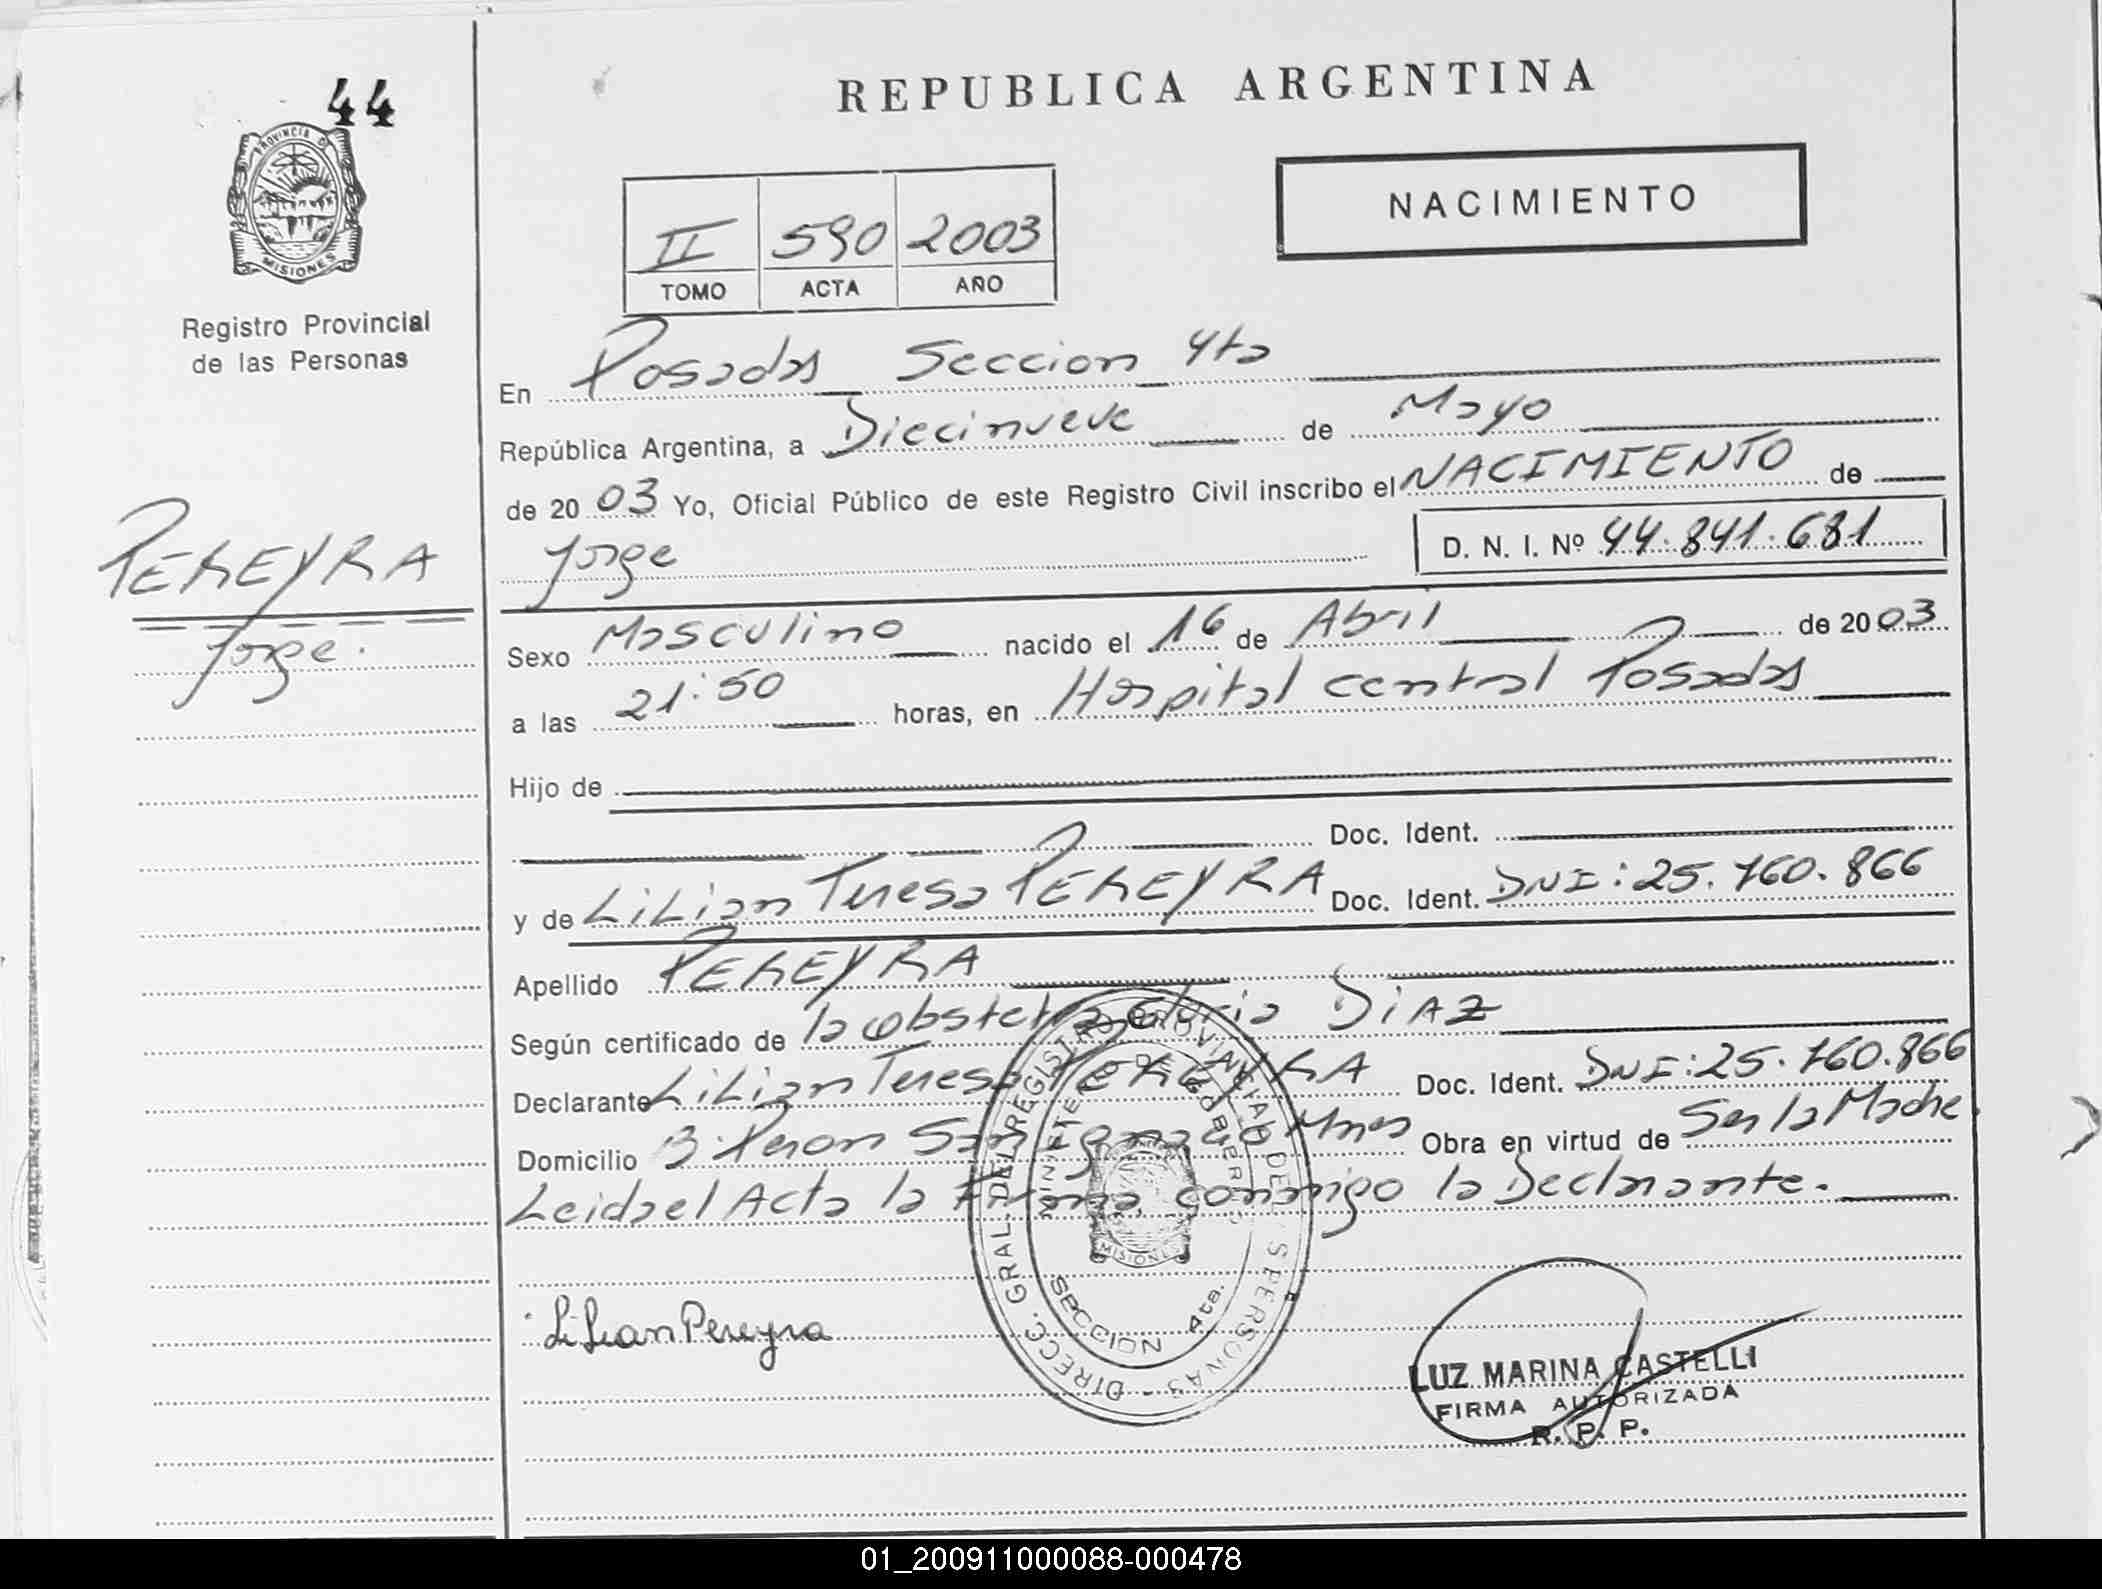 44
PROVINCIA DE
MISIONES
Registro Provincial
de las Personas
PEREYRA
Jorge.
REPUBLICA ARGENTINA
NACIMIENTO
II 590 2003
TOMO ACTA AÑO
En Posadas Seccion 4ta
República Argentina, a Diecinueve de Mayo
de 2003 Yo, Oficial Público de este Registro Civil inscribo el NACIMIENTO de
Jorge D. N. I. Nº 44.841.681
Sexo Masculino nacido el 16 de Abril de 2003
a las 21:50 horas, en Hospital central Posadas
Hijo de
Doc. Ident.
y de Lilian Teresa PEREYRA Doc. Ident. DNI: 25.760.866
Apellido PEREYRA
Según certificado de la obstetra Gloria DIAZ
Declarante Lilian Teresa PEREYRA Doc. Ident. DNI: 25.760.866
Domicilio B. Peron San Ignacio Mnes Obra en virtud de Ser la Madre
Leida el Acta la Firma conmigo la Declarante.
DIRECC. GRAL. DEL REGISTRO PROVINCIAL DE LAS PERSONAS
MINISTERIO DE GOBIERNO
MISIONES
SECCION 4ta.
Lilian Pereyra
LUZ MARINA CASTELLI
FIRMA AUTORIZADA
R. P. P.
01_200911000088-000478